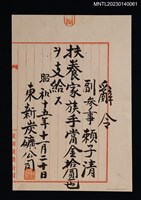 MNTL20230140061
辭令
副參事 賴子清
扶養家族手當金拾圓也
ヲ支給ス
昭和十五年十一月二十日
東新炭礦公司